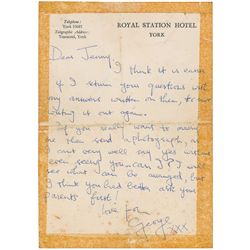 Telephone:
York 53681
Telegraphic Address:
Townotel, York
ROYAL STATION HOTEL
YORK
Dear Jenny,
I think it is easier
if I return your questions with
my answers written on them, to save
writing it out again.
If you really want to
then send a photograph, as
I can't very well say yes without
even seeing you - can I? I will
see what can be arranged, but
I think you had better ask your
parents first!
love from
George
xxx